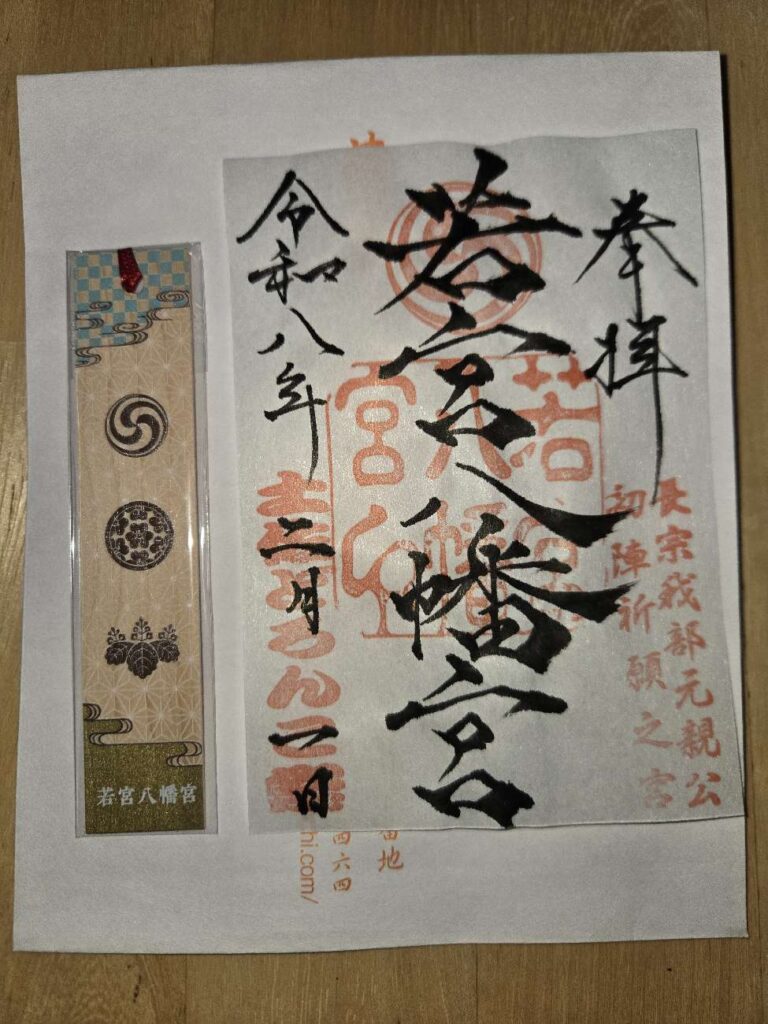 奉拝
長宗我部元親公
初陣祈願之宮
若宮八幡宮
若宮
八幡
宮印
令和八年
二月一日
若宮八幡宮
地
四六四
hi.com/